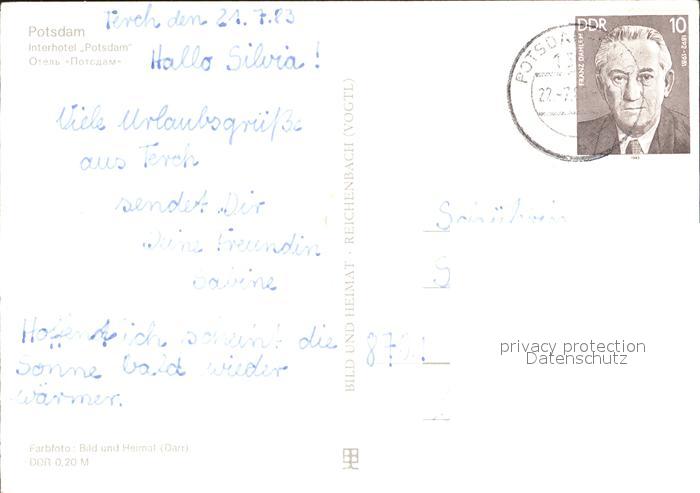 Ferch den 21.7.83
Potsdam
Interhotel „Potsdam“
Отель «Потсдам»
Hallo Silvia!
Viele Urlaubsgrüße
aus Ferch
sendet Dir
Deine Freundin
Sabine
Hoffentlich scheint die
Sonne bald wieder
wärmer.
Farbfoto: Bild und Heimat (Darr)
DDR 0,20 M
BILD UND HEIMAT · REICHENBACH (VOGTL)
POTSDA
22.-7.
DDR 10
FRANZ DAHLEM
1892-1981
1983
S
privacy protection
Datenschutz